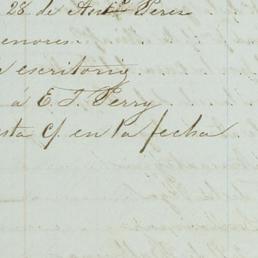 28 de Antº Perez
enores.
escritorio
á E. J. Perry
sta c/ en la fecha